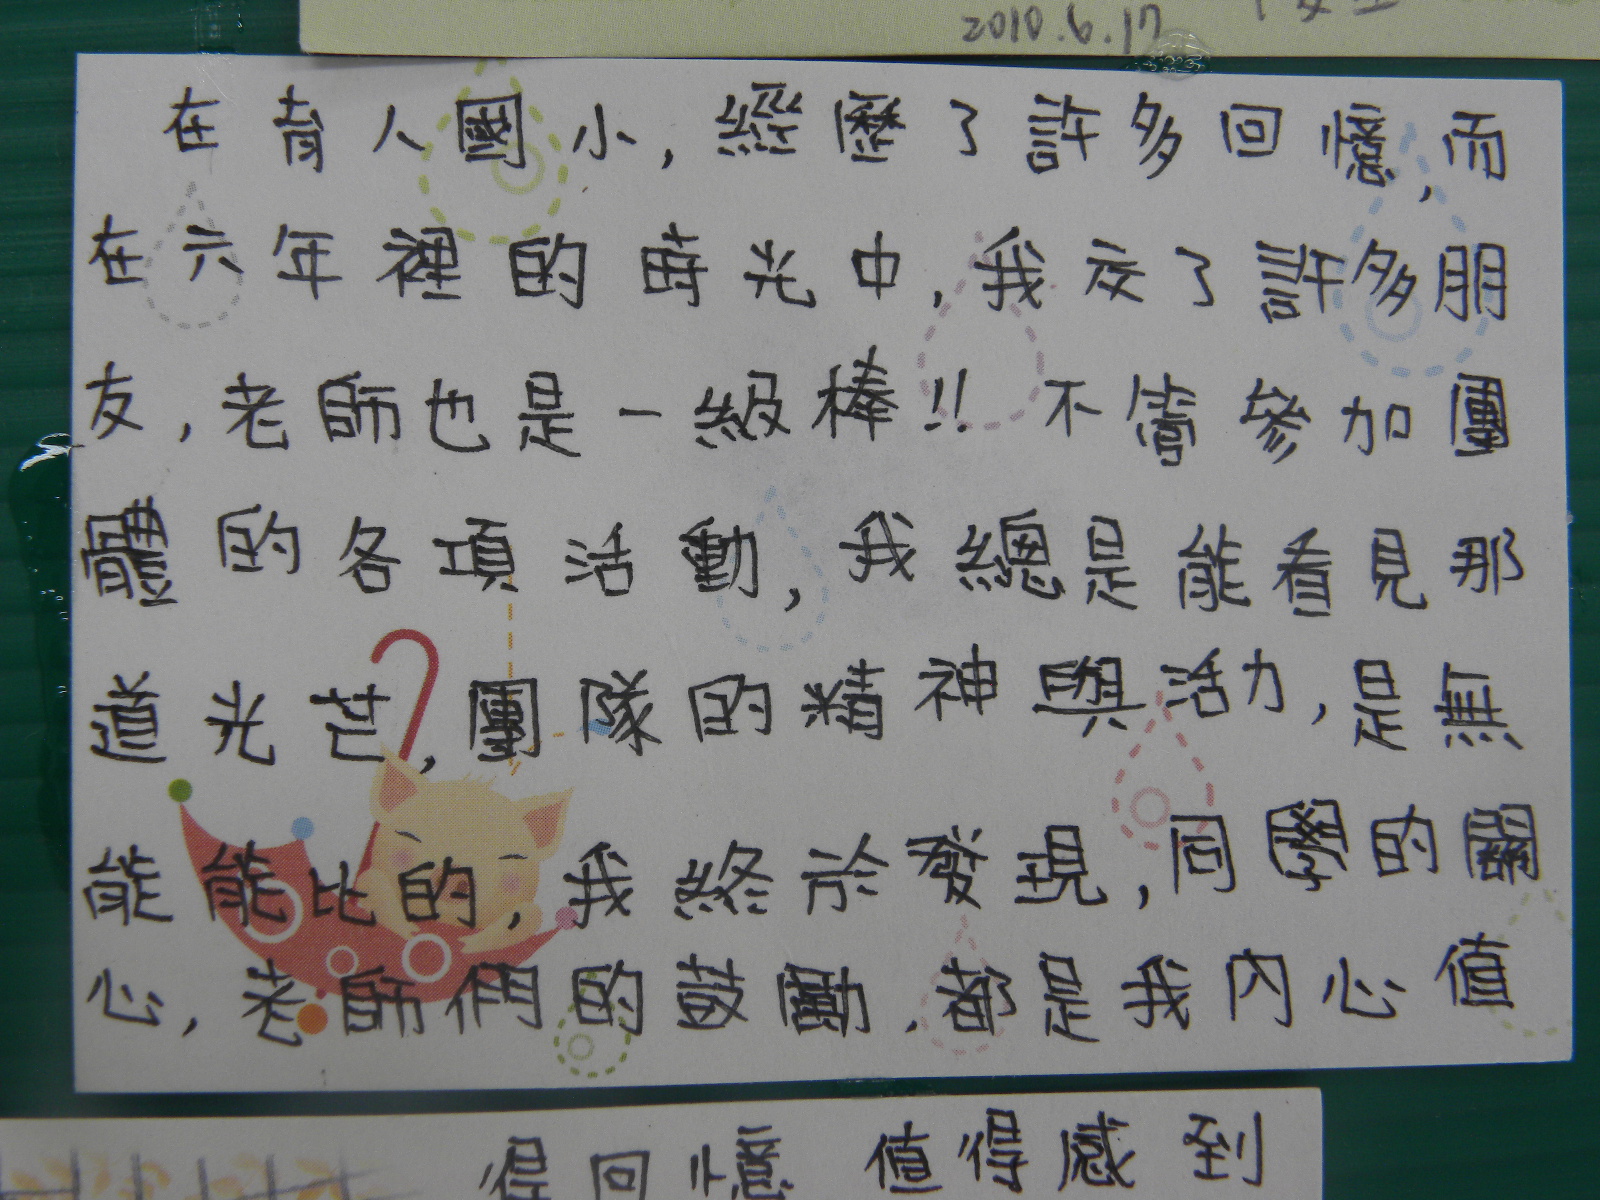 2010.6.17
在育人國小,經歷了許多回憶,而
在六年裡的時光中,我交了許多朋
友,老師也是一級棒!!不管參加團
體的各項活動,我總是能看見那
道光芒,團隊的精神與活力,是無
能能比的,我終於發現,同學的關
心,老師們的鼓勵,都是我內心值
得回憶 值得感到